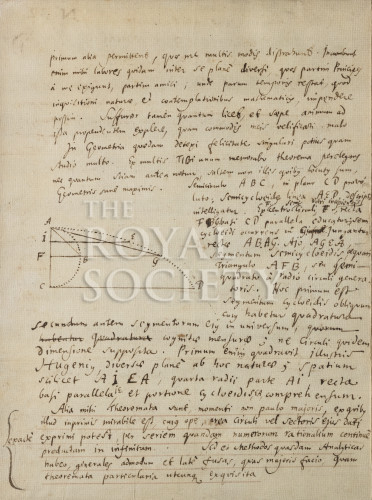 primum alia permittent, quae me multis modis distrahunt. Invenibus
enim mihi labores quidam inter se plane diversi, quos partim Principes
a me exigunt, partim amici; unde parum temporis restat quod
inquisitioni naturae et contemplationibus mathematicis impendere
possim. Suffuror tamen quantum licet, et saepe animum ad
ista propendentem explere, quam commodis meis velificari malo
In Geometria quaedam detexi felicitate singulari potius quam
studio multo. Ex multis Tibi unum memorabo theorema perelegans
ne quantum sciam antea notum.
Semicirculo ABC, in plano CD provoluto,
Semicycloeidis linea AED
intelligatur
CD parallela educatur
cycloidi occurrens in
rectae AB, AG. Ajo AGEA,
segmentum Semicycloeidis aequari
Triangulo AFB, seu semiquadrato
a radio circuli generatoris.
Hoc primum est
segmentum cycloeidis obliquum
cujus habetur quadratura
secundum autem segmentorum ejus in universum,
cognitis mensura; ne Circuli quidem
dimensione supposita. Primum enim quadravit illustris
Hugenius diversae plane ab hoc naturae; spatium
scilicet AIEA, quarta radii parte AI, recta
basi parallela et portione Cycloeidis comprehensum.
Alia mihi Theoremata sunt, momenti non paulo majoris, ex quibus
illud inprimis mirabile est, cujus ope Circuli vel sectoris ejus dati
exacte exprimi potest, per seriem quandam numerorum rationalium continue
productam in infinitum. Sed et Methodos quasdam Analyticas
habeo, generales admodum et late fusas, quas majoris facio quam
theoremata particularia utcunque exquisita.
A
I
E
F
B
G
C
D
THE
ROYAL
SOCIETY